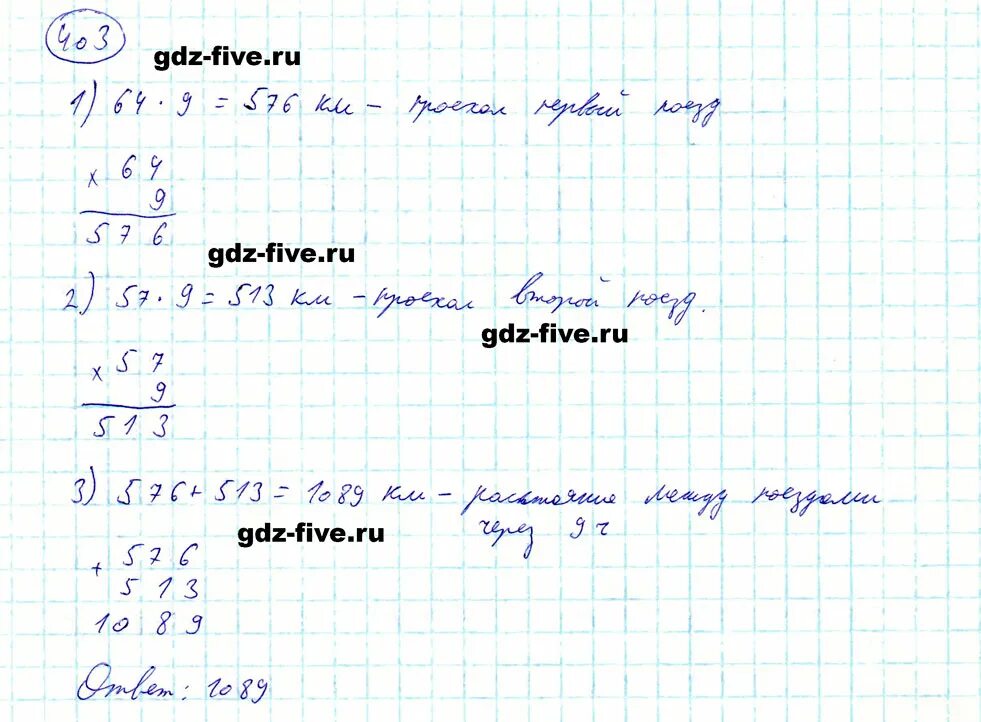 403
gdz-five.ru
1) 64 · 9 = 576 км - проехал первый поезд
× 64
9
576
gdz-five.ru
2) 57 · 9 = 513 км - проехал второй поезд.
gdz-five.ru
× 57
9
513
3) 576 + 513 = 1089 км - расстояние между поездами
через 9 ч
gdz-five.ru
+ 576
513
1089
Ответ: 1089